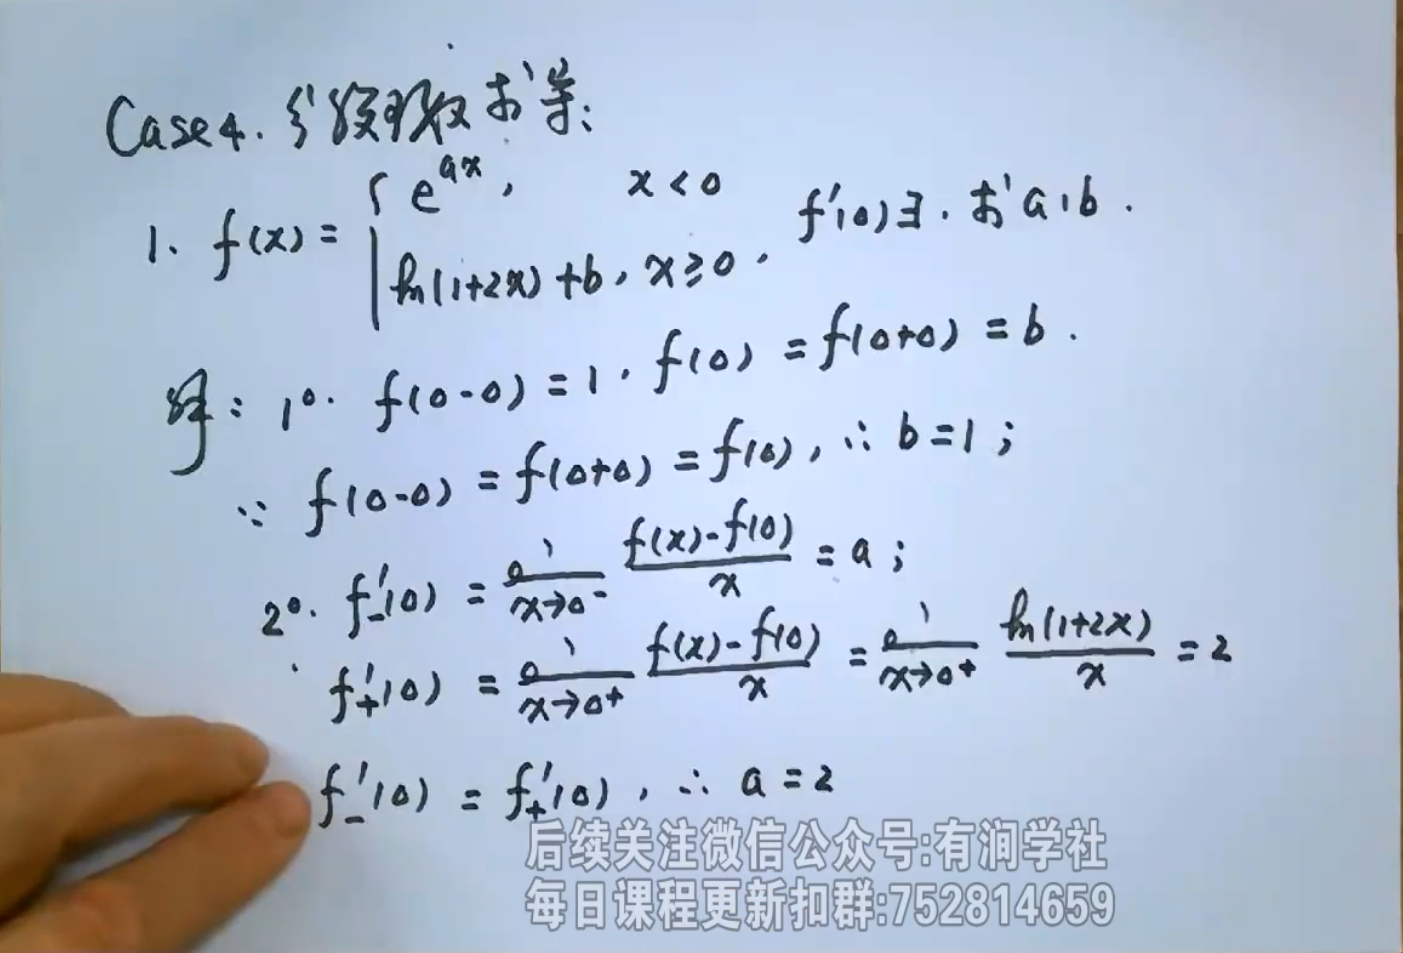 Case 4. 分段函数求导:
1. f(x) = { e^{ax}, x < 0
ln(1+2x) + b, x ≥ 0. f'(0)∃. 求 a, b.
解: 1°. f(0-0) = 1. f(0) = f(0+0) = b.
∵ f(0-0) = f(0+0) = f(0), ∴ b = 1;
2°. f'₋(0) = lim_{x→0⁻} \frac{f(x)-f(0)}{x} = a;
f'₊(0) = lim_{x→0⁺} \frac{f(x)-f(0)}{x} = lim_{x→0⁺} \frac{ln(1+2x)}{x} = 2
f'₋(0) = f'₊(0), ∴ a = 2
后续关注微信公众号:有润学社
每日课程更新扣群:752814659